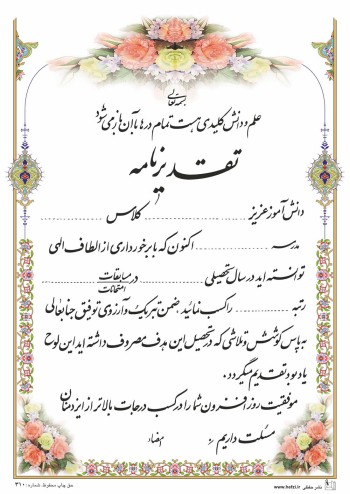 بسمه تعالی
علم و دانش کلیدی هست تمام درها با آن باز می شود
تقدیرنامه
دانش آموز عزیز .................... کلاس ....................
مدرسه .................... اکنون که با برخورداری از الطاف الهی
توانسته اید در سال تحصیلی .................... در مسابقات
امتحانات
رتبه .................... را کسب نمائید، ضمن تبریک و آرزوی توفیق جنابعالی
به پاس کوشش و تلاشی که در تحصیل این هدف مصروف داشته اید این لوح
یادبود تقدیم میگردد.
موفقیت روزافزون شما را در کسب درجات بالاتر از ایزد منان
مسئلت داریم
امضاء
حق چاپ محفوظ. شماره: ۳۱۰
www.hafzi.ir